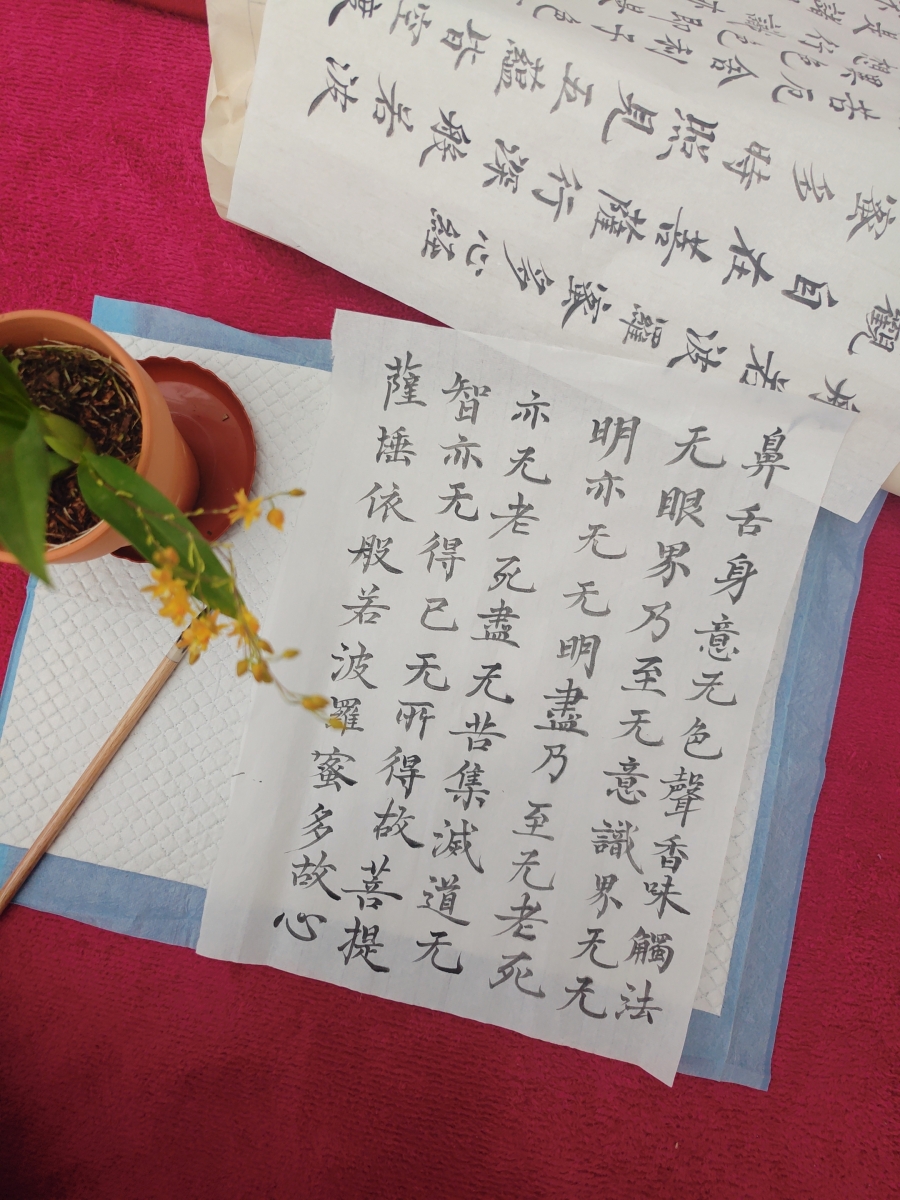 般若波羅蜜多心經
觀自在菩薩行深般若波
蜜多時照見五蘊皆空度
苦厄舍利子色
鼻舌身意无色聲香味觸法
无眼界乃至无意識界无无
明亦无无明盡乃至无老死
亦无老死盡无苦集滅道无
智亦无得已无所得故菩提
薩埵依般若波羅蜜多故心